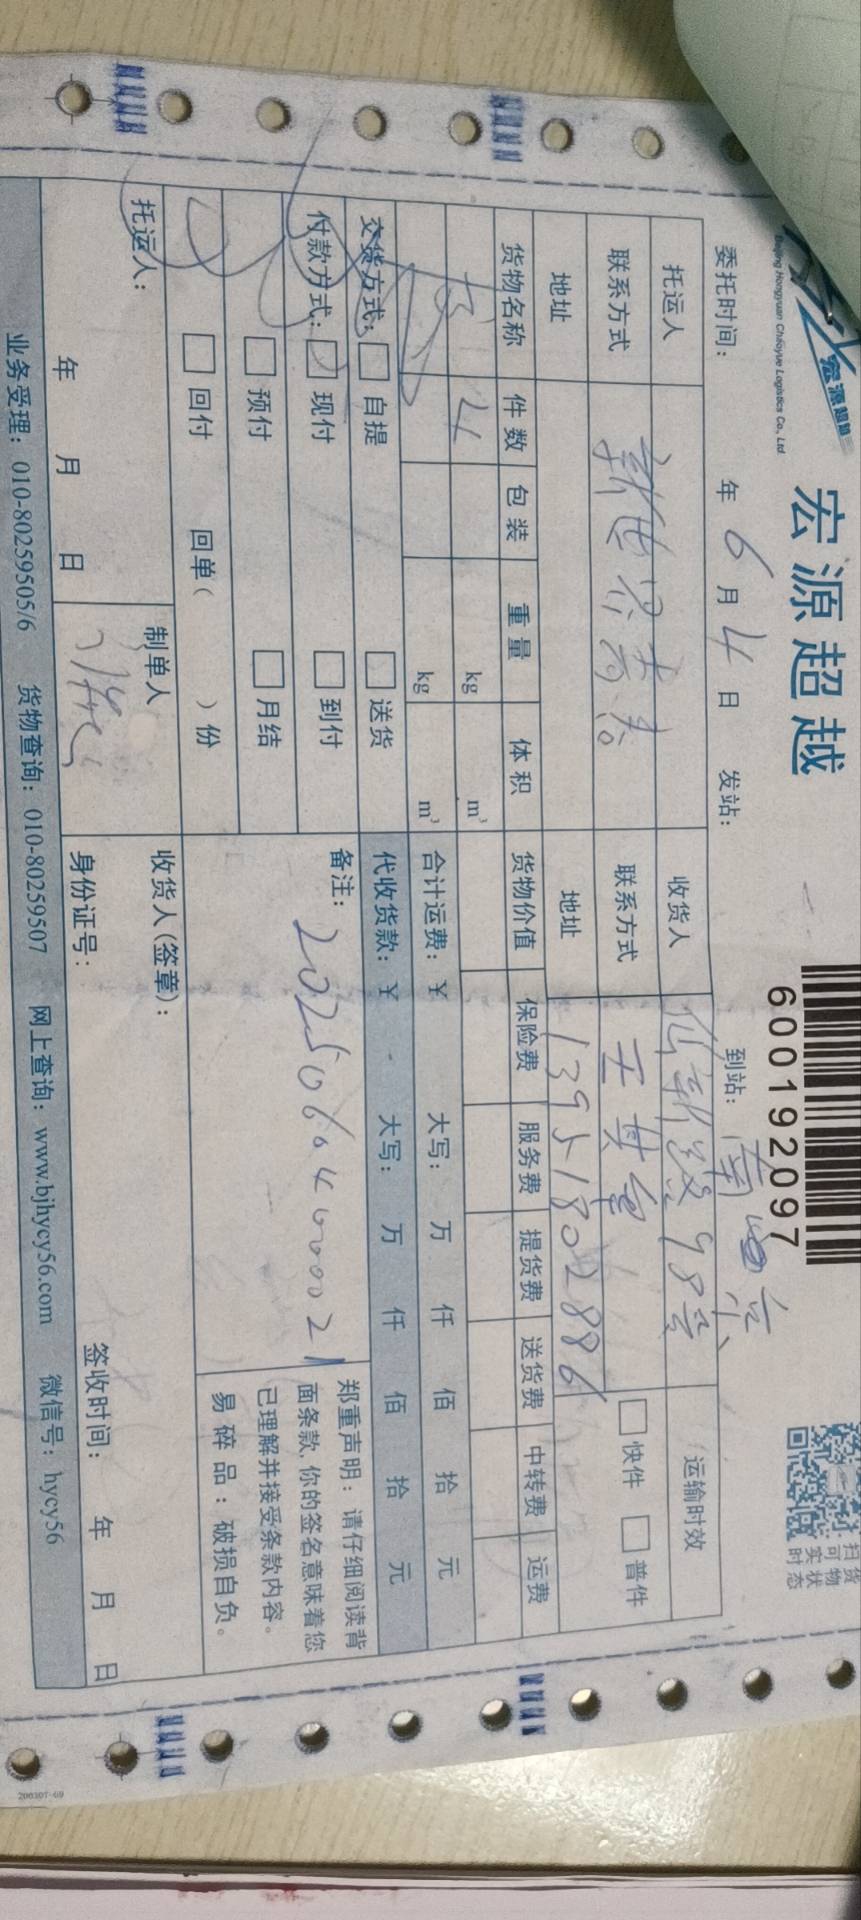 宏源超越
宏源超越
Beijing Hongyuan Chaoyue Logistics Co., Ltd
6000192097
扫货
可物
实状
时态
委托时间： 年 6 月 4 日 发站： 到站：南京
托运人 收货人 98号 运输时效
联系方式 新世界 联系方式 王其 快件 普件
地址 地址 13951802886
货物名称 件数 包装 重量 体积 货物价值 保险费 服务费 提货费 送货费 中转费 运费
4 kg m³
kg m³ 合计运费：¥ 大写： 万 仟 佰 拾 元
交货方式： 自提 送货 代收货款：¥ 大写： 万 仟 佰 拾 元
付款方式： 现付 到付
预付 月结
回付 回单（ ）份
备注：
郑重声明：请仔细阅读背
面条款，你的签名意味着您
已理解并接受条款内容。
易碎品：破损自负。
托运人： 制单人 收货人(签章)：
年 月 日 身份证号： 签收时间： 年 月 日
业务受理：010-80259505/6 货物查询：010-80259507 网上查询：www.bjhycy56.com 微信号：hycy56
200307-09